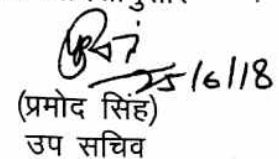 25/6/18
(प्रमोद सिंह)
उप सचिव